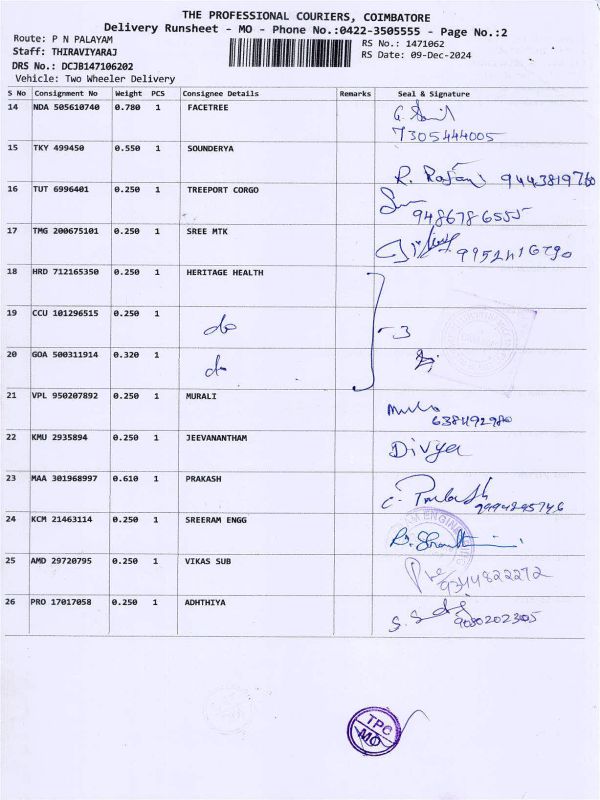 THE PROFESSIONAL COURIERS, COIMBATORE
Delivery Runsheet - MO - Phone No.:0422-3505555 - Page No.:2
Route: P N PALAYAM
RS No.: 1471062
Staff: THIRAVIYARAJ
RS Date: 09-Dec-2024
DRS No.: DCJB147106202
Vehicle: Two Wheeler Delivery
S No Consignment No Weight PCS Consignee Details Remarks Seal & Signature
14 NDA 505610740 0.780 1 FACETREE
7305444005
15 TKY 499450 0.550 1 SOUNDERYA
R. Rajani 9443819760
16 TUT 6996401 0.250 1 TREEPORT CORGO
9486786555
17 TMG 200675101 0.250 1 SREE MTK
18 HRD 712165350 0.250 1 HERITAGE HEALTH
19 CCU 101296515 0.250 1 do
- 3
20 GOA 500311914 0.320 1 do
21 VPL 950207892 0.250 1 MURALI
22 KMU 2935894 0.250 1 JEEVANANTHAM
Divya
23 MAA 301968997 0.610 1 PRAKASH
C. Prakash
24 KCM 21463114 0.250 1 SREERAM ENGG
25 AMD 29720795 0.250 1 VIKAS SUB
9344822272
26 PRO 17017058 0.250 1 ADHTHIYA
9080202305
TPC
MO